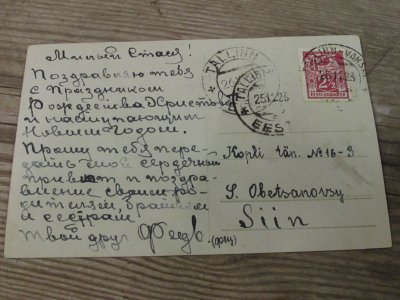 Милый Стася!
Поздравляю тебя
с Праздником
Рождества Христова
и наступающим
Новым Годом.
Прошу тебя пере-
дать мой сердечный
привет и поздра-
вление своим ро-
дителям, братьям
и сестрам!
Твой друг Федъ.
TALLINN
TALLINN
25.12.23
EESTI
2½
Kopli tän. № 16-3
S. Obetsanovsy
Siin